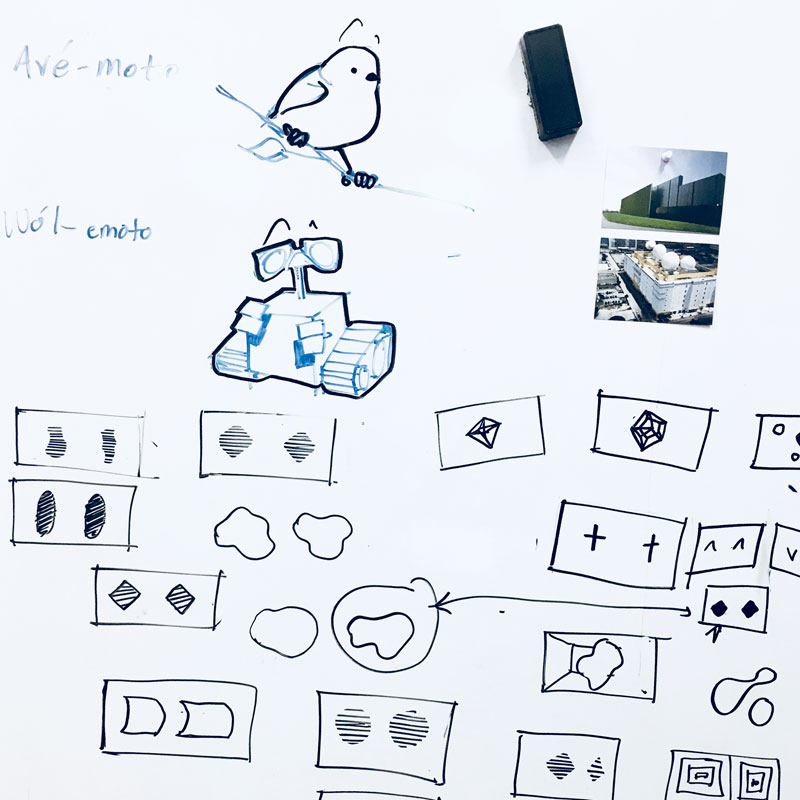 Avé-moto
Wól-emoto